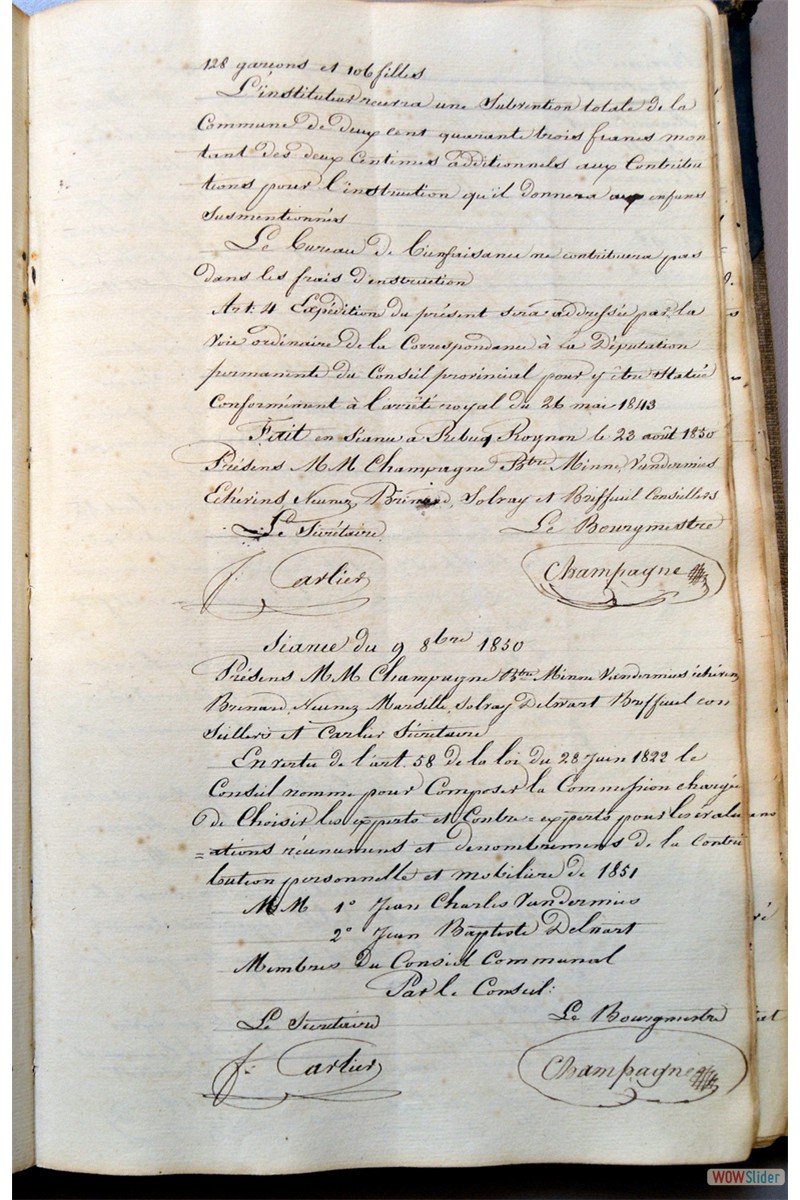 128 garçons et 106 filles
L'instituteur recevra une Subvention totale de la
Commune de deux cent quarante trois francs mon
tant des deux Centimes additionnels aux Contribu
tions pour l'instruction qu'il donnera aux enfans
Susmentionnés
Le bureau de bienfaisance ne contribuera pas
dans les frais d'instruction
Art: 4 Expédition du présent sera addressée par la
Voie ordinaire de la Correspondance à la Députation
permanente du Conseil provincial pour y être Statué
Conformément à l'arrêté royal du 26 mai 1843
Fait en Séance à Rebecq Rognon le 23 août 1850
Présens MM Champagne Btre Minne, Vandermies
Echevins Neunez, Brinard, Solvay et Biffeuil Conseillers
Le Sécrétaire Le Bourgmestre
J. Carlier Champagne
Séance du 9 8bre 1850
Présens MM Champagne Btre Minne Vandermies échevins
Brinard, Neunez Marsille, Solvay Delwart Briffeuil con
Seillers et Carlier Sécrétaire
En vertu de l'art. 58 de la loi du 28 Juin 1822 le
Conseil nomme pour Composer la Commission chargée
de Choisir les experts et Contre=experts pour les évalu
=ations récensemens et dénombremens de la contri
bution personnelle et mobilière de 1851
MM 1° Jean Charles Vandermies
2° Jean Baptiste Delwart
Membres du Conseil Communal
Par le Conseil:
Le Sécrétaire Le Bourgmestre
J. Carlier Champagne
WOWSlider